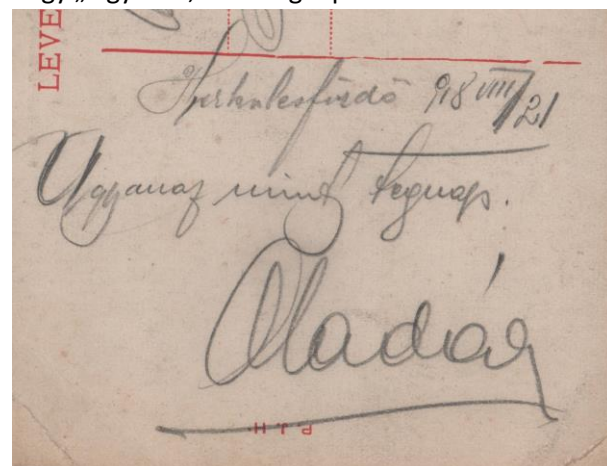 LEVE
Herkulesfürdő 918 VIII/21
Ugyanaz mint tegnap.
Aladár